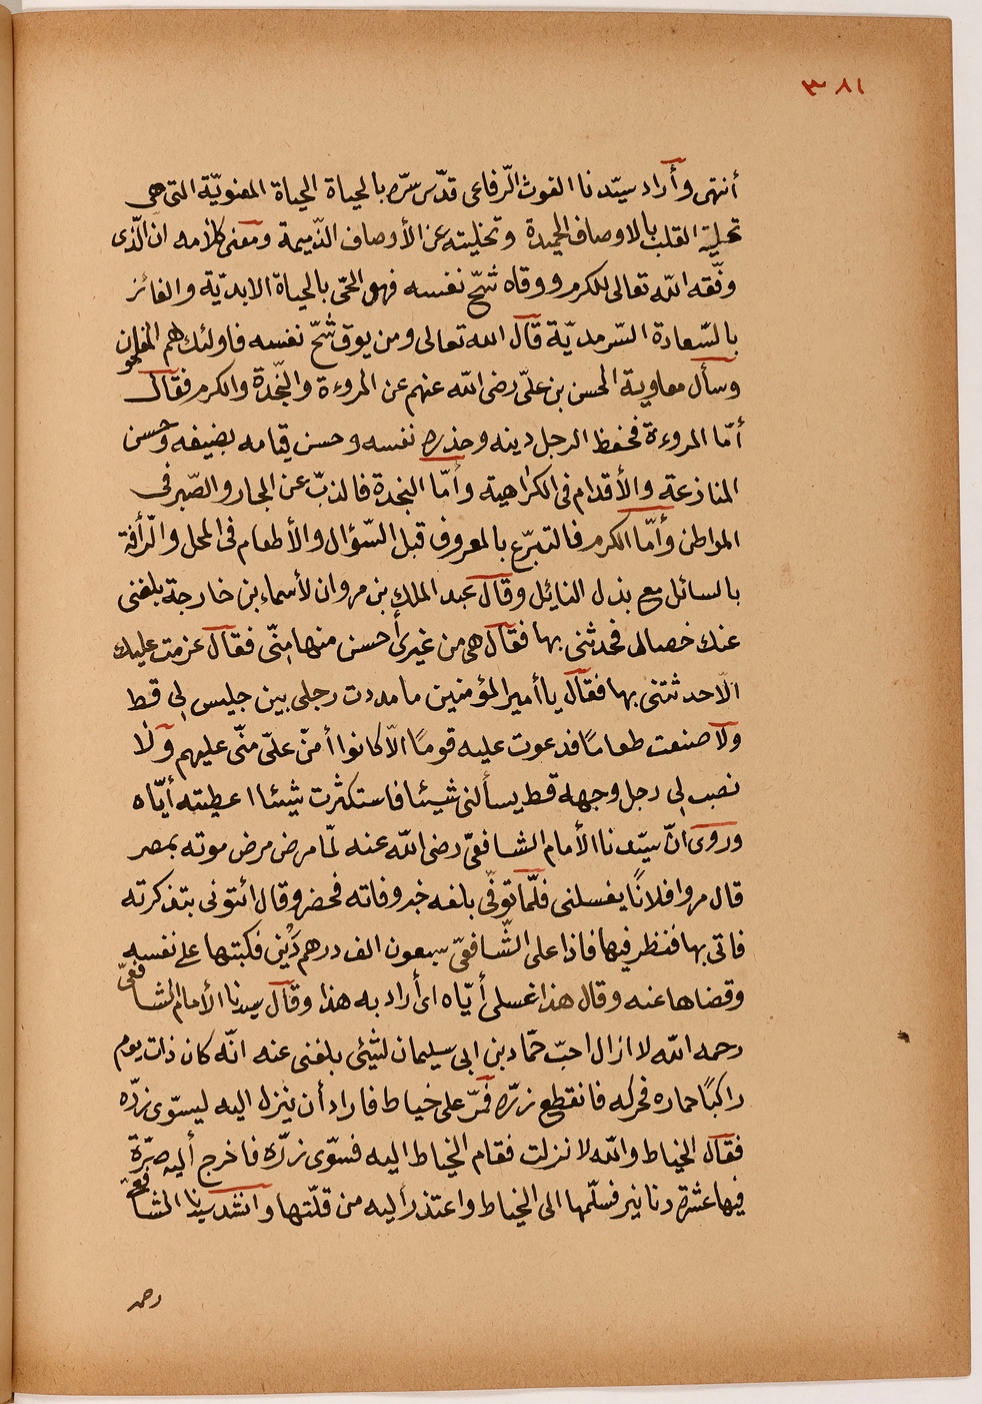 ٣٨١
أنتهى وأراد سيّدنا الغوث الرّفاعى قدّس سرّه بالحياة الحياة المعنويّة التى هى
تحلية القلب بالاوصاف الحميدة وتخليته عن الأوصاف الذّميمة ومعنى كلامه ان الّذى
وفّقه الله تعالى للكرم ووقاه شحّ نفسه فهو الحىّ بالحياة الابديّة والفائز
بالسّعادة السّرمديّة قال الله تعالى ومن يوق شحّ نفسه فاولئك هم المفلحون
وسأل معاوية الحسن بن علىّ رضى الله عنهم عن المروءة والنّجدة والكرم فقال
أمّا المروءة فحفظ الرجل دينه وحذره نفسه وحسن قيامه بضيفه وحسن
المنازعة والأقدام فى الكراهية وأمّا النجدة فالذبّ عن الجار والصّبر فى
المواطن وأمّا الكرم فالتبرّع بالمعروف قبل السّؤال والأطعام فى المحل والرّأفة
بالسائل مع بذل النائل وقال عبد الملك بن مروان لأسماء بن خارجة بلغنى
عنك خصال فحدثنى بها فقال هى من غيرى أحسن منها منّى فقال عزمت عليك
الّا حدثتنى بها فقال يا أمير المؤمنين ما مددت رجلى بين جليس لى قط
ولا صنعت طعامًا فدعوت عليه قومًا الّا كانوا أمنّ علىّ منّى عليهم ولا
نصب لى رجل وجهه قط يسألنى شيئا فاستكثرت شيئا اعطيته أيّاه
وروى انّ سيّدنا الأمام الشافعىّ رضى الله عنه لمّا مرض مرض موته بمصر
قال مروا فلانًا يغسلنى فلمّا توفّى بلغه خبر وفاته فحضر وقال ائتونى بتذكرته
فاتى بها فنظر فيها فاذا على الشّافعىّ سبعون الف درهم دَيْن فكبتها على نفسه
وقضاها عنه وقال هذا غسلى أيّاه اى أراد به هذا وقال سيدنا الأمام الشافعىّ
رحمه الله لا ازال احبّ حمّاد بن ابى سليمان لشئ بلغنى عنه انّه كان ذات يوم
راكبًا حماره فحركه فانقطع زرّه فمرّ على خياط فاراد أن ينزل اليه ليسوّى زرّه
فقال الخياط والله لا نزلت فقام الخياط اليه فسوّى زرّه فاخرج أليه صرّة
فيها عشرة دنانير فسلّمها الى الخياط واعتذر أليه من قلّتها وانشد سيدنا الشافعىّ
رحمه